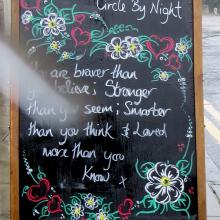 Circle By Night
are braver than
believe; Stronger
than you seem; Smarter
than you think & Loved
more than you
Know x